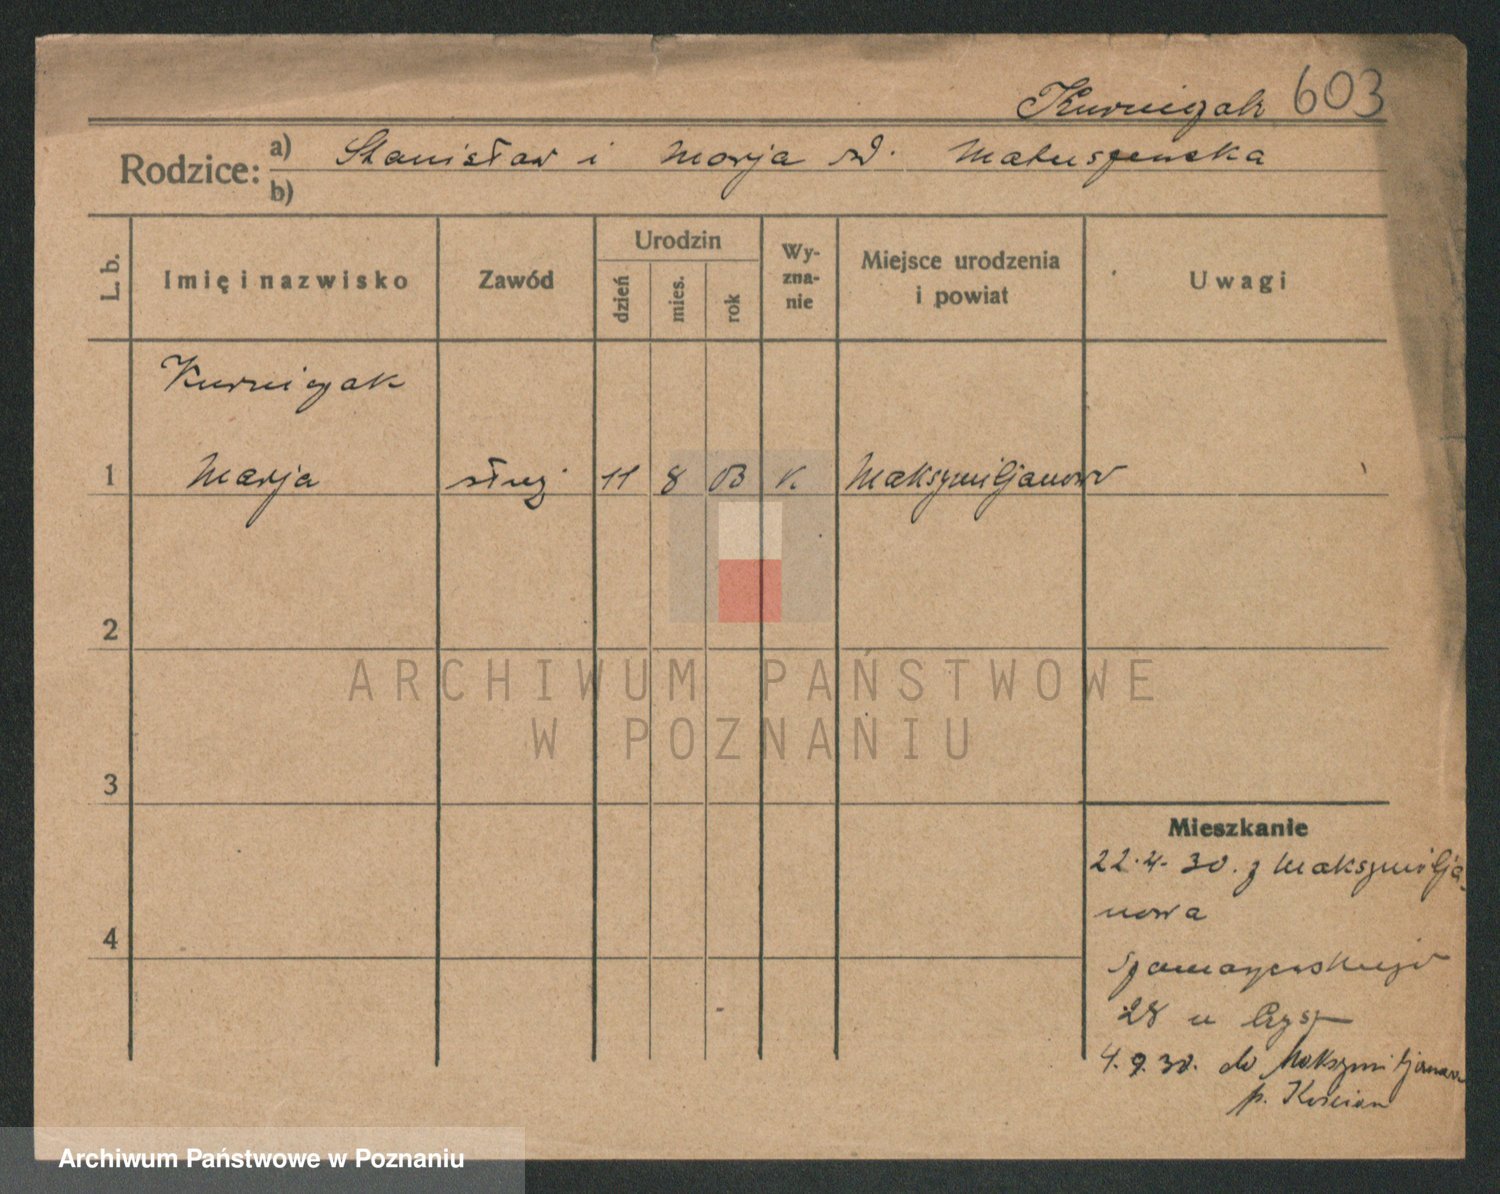 Kurniczak 603
Rodzice: a) Stanisław i Marja
b)
L. b.
Imię i nazwisko
Zawód
Urodzin
dzień
mies.
rok
Wy-
zna-
nie
Miejsce urodzenia
i powiat
Uwagi
Kurniczak
1 Marja służ 11 8 03 k. Maksymiljanowo
2
3
4
Mieszkanie
22.4.30. z Maksymilja-
nowa
28 u
4.9.30. do Maksymiljanowa
p. Kościan
ARCHIWUM PAŃSTWOWE
W POZNANIU
Archiwum Państwowe w Poznaniu